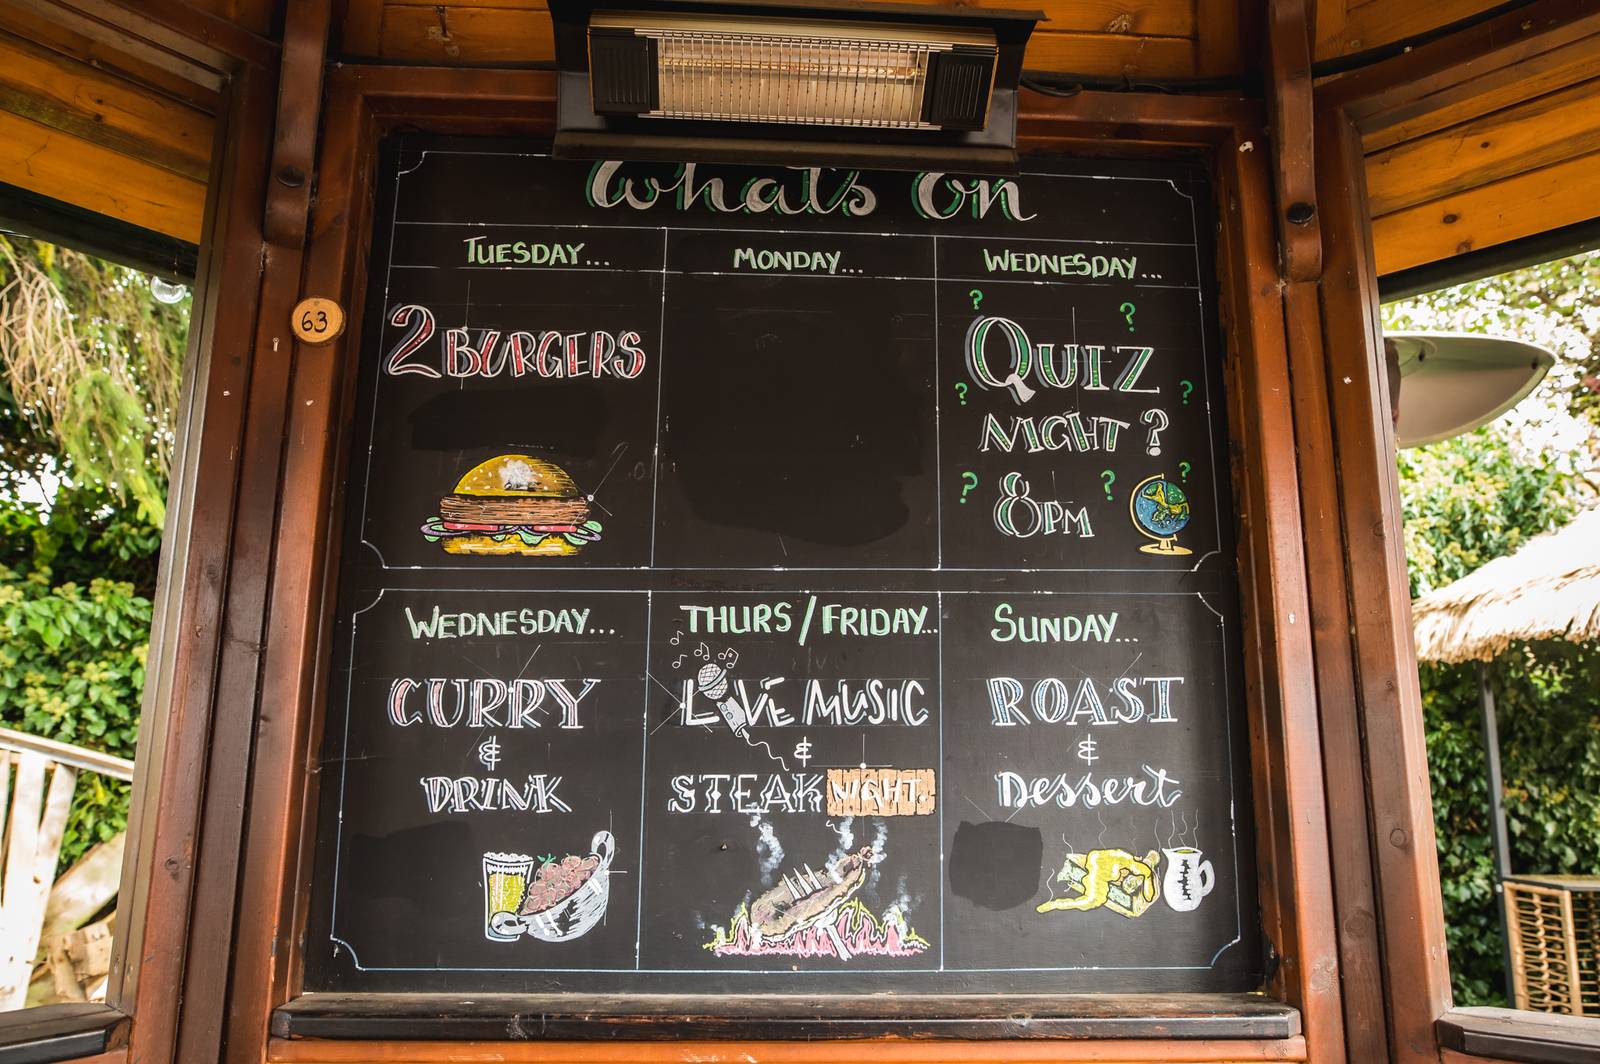 What's On
TUESDAY...
MONDAY...
WEDNESDAY...
63
2 BURGERS
QUIZ
NIGHT?
8PM
WEDNESDAY...
THURS/FRIDAY...
SUNDAY...
CURRY
&
DRINK
LIVE MUSIC
&
STEAK NIGHT.
ROAST
&
Dessert